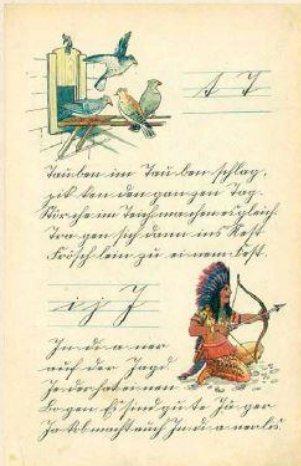 t T
Tau ben im Tau ben schlag,
pik ken den gan zen Tag.
Stör che im Teich ma chen es gleich
Tra gen sich dann ins Nest
Frösch lein zu ei nem Fest.
i j J
In di a ner
auf der Jagd
Je der hat ei nen
Bo gen. Es sind gu te Jä ger
Ja kob macht auch